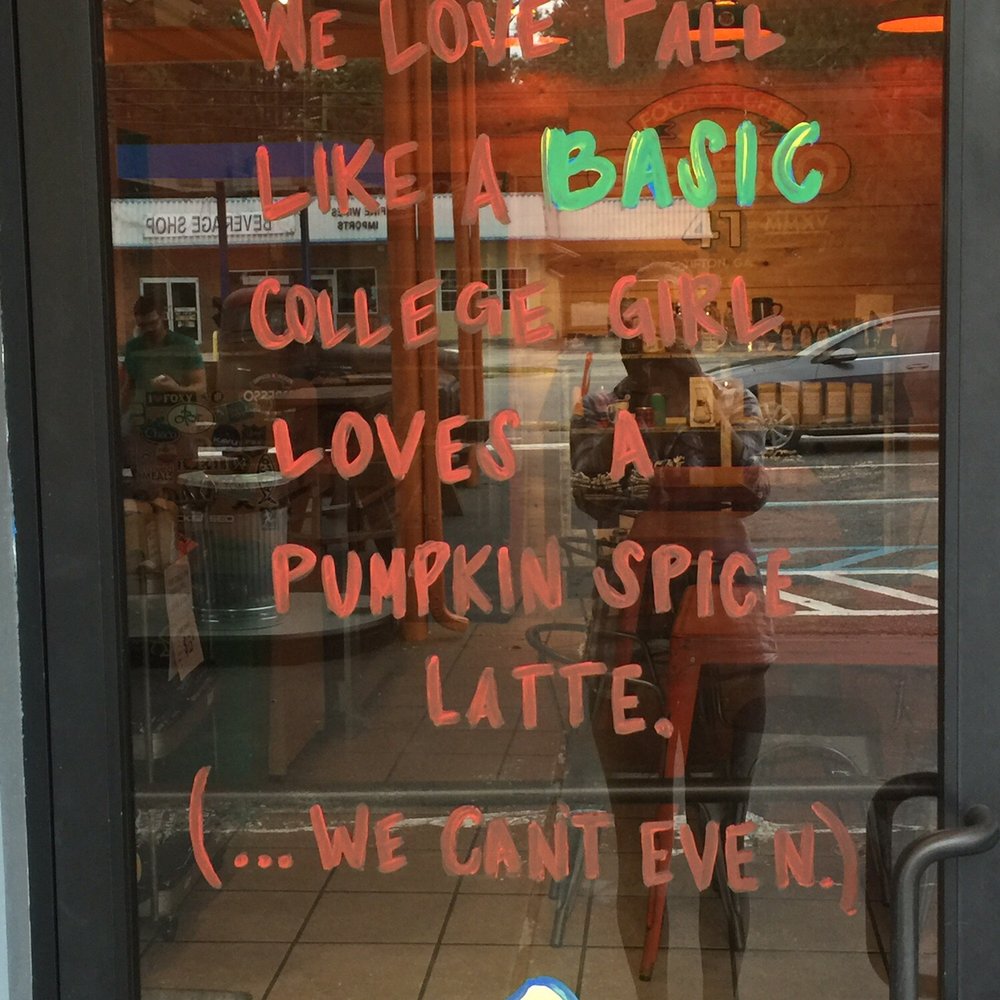 We Love Fall
Like A BASIC
College Girl
Loves A
Pumpkin Spice
Latte.
(...We Can't Even.)
BEVERAGE SHOP
FINE WINES
IMPORTS
41
TIFTON, GA
I ♥ FOXY
Chaco
KAVU